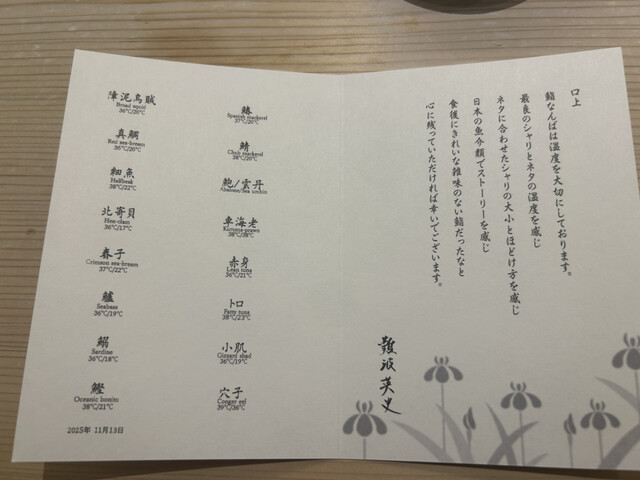 障泥烏賊
Broad squid
36℃/20℃
真鯛
Red sea-bream
36℃/20℃
細魚
Halfbeak
38℃/22℃
北寄貝
Hen-clam
36℃/17℃
春子
Crimson sea-bream
37℃/22℃
鱸
Seabass
36℃/19℃
鰯
Sardine
36℃/18℃
鰹
Oceanic bonito
38℃/21℃
2025年 11月13日
鰆
Spanish mackerel
37℃/20℃
鯖
Chub mackerel
38℃/20℃
鮑/雲丹
Abalone/Sea urchin
車海老
Kuruma-prawn
38℃/38℃
赤身
Lean tuna
36℃/21℃
トロ
Fatty tuna
38℃/23℃
小肌
Gizzard shad
36℃/19℃
穴子
Conger eel
39℃/36℃
口上
鮨なんばは温度を大切にしております。
最良のシャリとネタの温度を感じ
ネタに合わせたシャリの大小とほどけ方を感じ
日本の魚介類でストーリーを感じ
食後にきれいな雑味のない鮨だったなと
心に残っていただければ幸いでございます。
難波英史